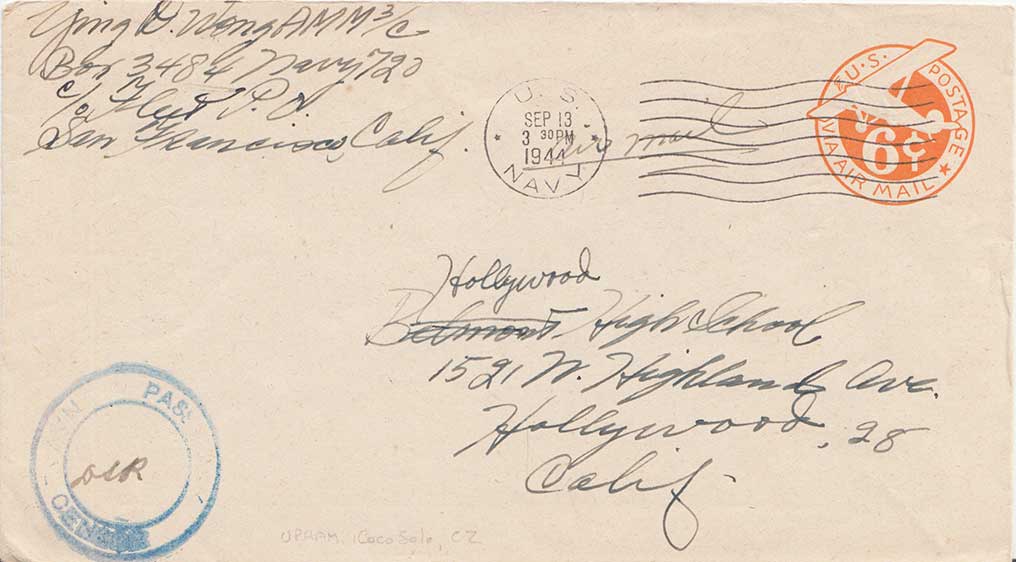 Ying D. Wong AMM 3/c
Box 3484 Navy 720
c/o Fleet P. O.
San Francisco, Calif.
U.S.
SEP 13
3 30 PM
1944
NAVY
Air mail
U.S. POSTAGE
6¢
VIA AIR MAIL
Hollywood
Belmont High School
1521 N. Highland Ave.
Hollywood, 28
Calif
PASS
CENSOR
Coco Solo, CZ